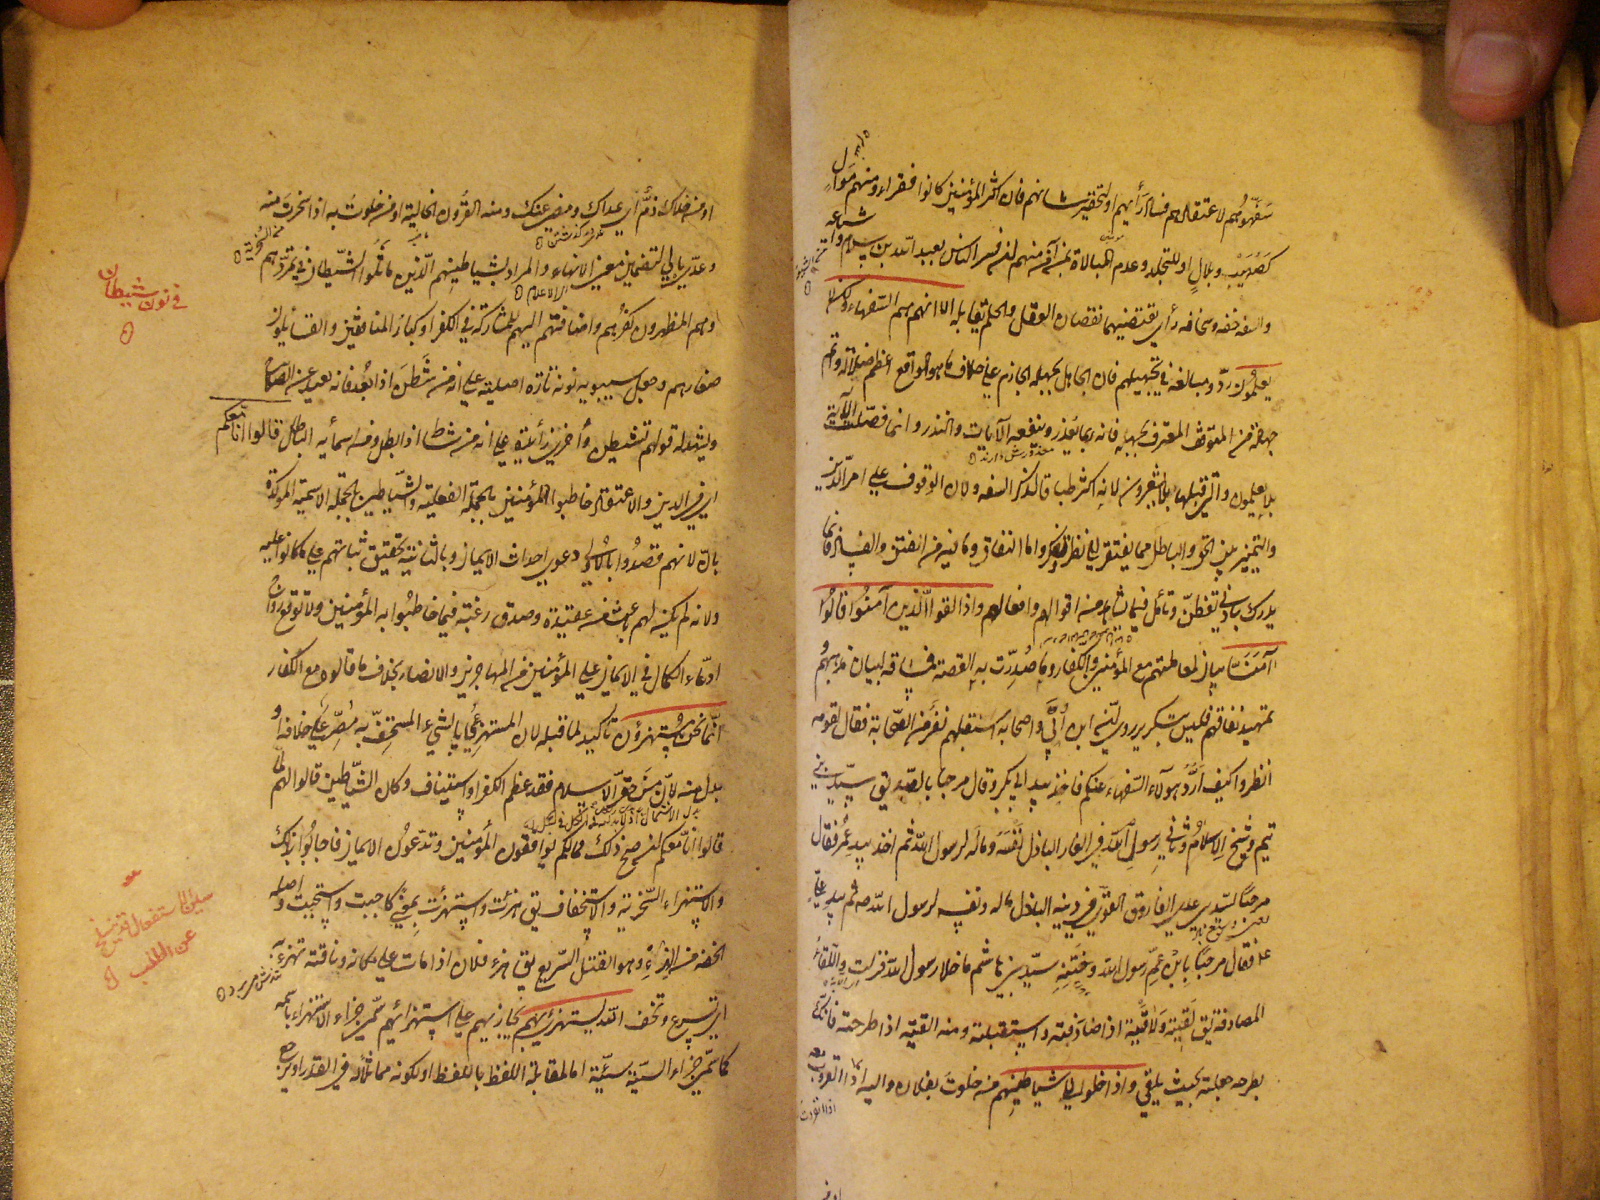 سفهوهم لاعتقادهم فساد رأيهم او لتحقير شأنهم فان اكثر المؤمنين كانوا فقراء ومنهم موال
كصهيب وبلال او للتجلد وعدم المبالاة بمن آمن منهم ان فسر الناس بعبد الله بن سلام واشياعه
والسفه خفة وسخافة رأي يقتضيهما نقصان العقل والحلم يقابله الا انهم هم السفهاء ولكن لا
يعلمون رد ومبالغة في تجهيلهم فان الجاهل بجهله الجازم على خلاف ما هو الواقع اعظم ضلالة واتم
جهالة من المتوقف المعترف بجهله فانه ربما يعذر وينفعه الآيات والنذر وانما فصلت الآية
بلا يعلمون والتي قبلها بلا يشعرون لانه اكثر طباقا لذكر السفه ولان الوقوف على امر الدين
والتميز بين الحق والباطل مما يفتقر الى نظر وفكر واما النفاق وما فيه من الفتن والفساد فانما
يدرك بادنى تفطن وتأمل فيما يشاهد من اقوالهم وافعالهم واذا لقوا الذين آمنوا قالوا
آمنا بيان لمعاملتهم مع المؤمنين والكفار وما صدرت به القصة فمساقه لبيان مذهبهم و
تمهيد نفاقهم فليس بتكرير روي ان ابن ابي واصحابه استقبلهم نفر من الصحابة فقال لقومه
انظروا كيف ارد هؤلاء السفهاء عنكم فاخذ بيد ابي بكر وقال مرحبا بالصديق سيد بني
تيم وشيخ الاسلام وثاني رسول الله في الغار الباذل نفسه وماله لرسول الله ثم اخذ بيد عمر فقال
مرحبا لسيد بني عدي الفاروق القوي في دينه الباذل ماله ونفسه لرسول الله صه ثم بيد علي
فقال مرحبا يا بن عم رسول الله وختنه سيد بني هاشم ما خلا رسول الله فنزلت واللقاء
المصادفة يق لقيته ولاقيته اذا صادفته واستقبلته ومنه القيته اذا طرحته فانك
بطرحه جعلته بحيث يلقى واذا خلوا الى شياطينهم من خلوت بفلان واليه اذا انفردت معه
او من خلاك ذم اي عداك ومضى عنك ومنه القرون الخالية او من خلوت به اذا سخرت منه
وعدي بالى لتضمن معنى الانهاء والمراد بشياطينهم الذين ماثلوا الشيطان في تمردهم
وهم المظهرون كفرهم واضافتهم اليهم للمشاركة في الكفر او كبار المنافقين والقائلون
صغارهم وجعل سيبويه نونه تارة اصلية على انه من شطن اذا بعد فانه بعيد عن الصلاح
ويشهد له قولهم تشيطن واخرى زائدة على انه من شاط اذا بطل ومن اسمائه الباطل قالوا انا معكم
اي في الدين والاعتقاد خاطبوا المؤمنين بالجملة الفعلية والشياطين بالجملة الاسمية المؤكدة
بان لانهم قصدوا بالاولى دعوى احداث الايمان وبالثانية تحقيق ثباتهم على ما كانوا عليه
ولانه لم يكن لهم باعث من عقيدة وصدق رغبة فيما خاطبوا به المؤمنين ولا توقع رواج
ادعاء الكمال في الايمان على المؤمنين من المهاجرين والانصار بخلاف ما قالوه مع الكفار
انما نحن مستهزؤن تأكيد لما قبله لان المستهزئ بالشيء المستخف به مصر على خلافه او
بدل منه لان من حقر الاسلام فقد عظم الكفر او استيناف وكان الشياطين قالوا لهم لما
قالوا انا معكم ان صح ذلك فما لكم توافقون المؤمنين وتدعون الايمان فاجابوا بذلك
والاستهزاء السخرية والاستخفاف يق هزئت واستهزئت بمعنى كاجبت واستجبت واصله
الخفة من الهزء وهو القتل السريع يق هزء فلان اذا مات على مكانه وناقته تهزء به
اي تسرع وتخف الله يستهزئ بهم يجازيهم على استهزائهم سمي جزاء الاستهزاء باسمه
كما سمي جزاء السيئة سيئة اما لمقابلة اللفظ باللفظ او لكونه مماثلا له في القدر او يرجع
في نون شيطان
سين الاستفعال قد ينسلخ
عن الطلب